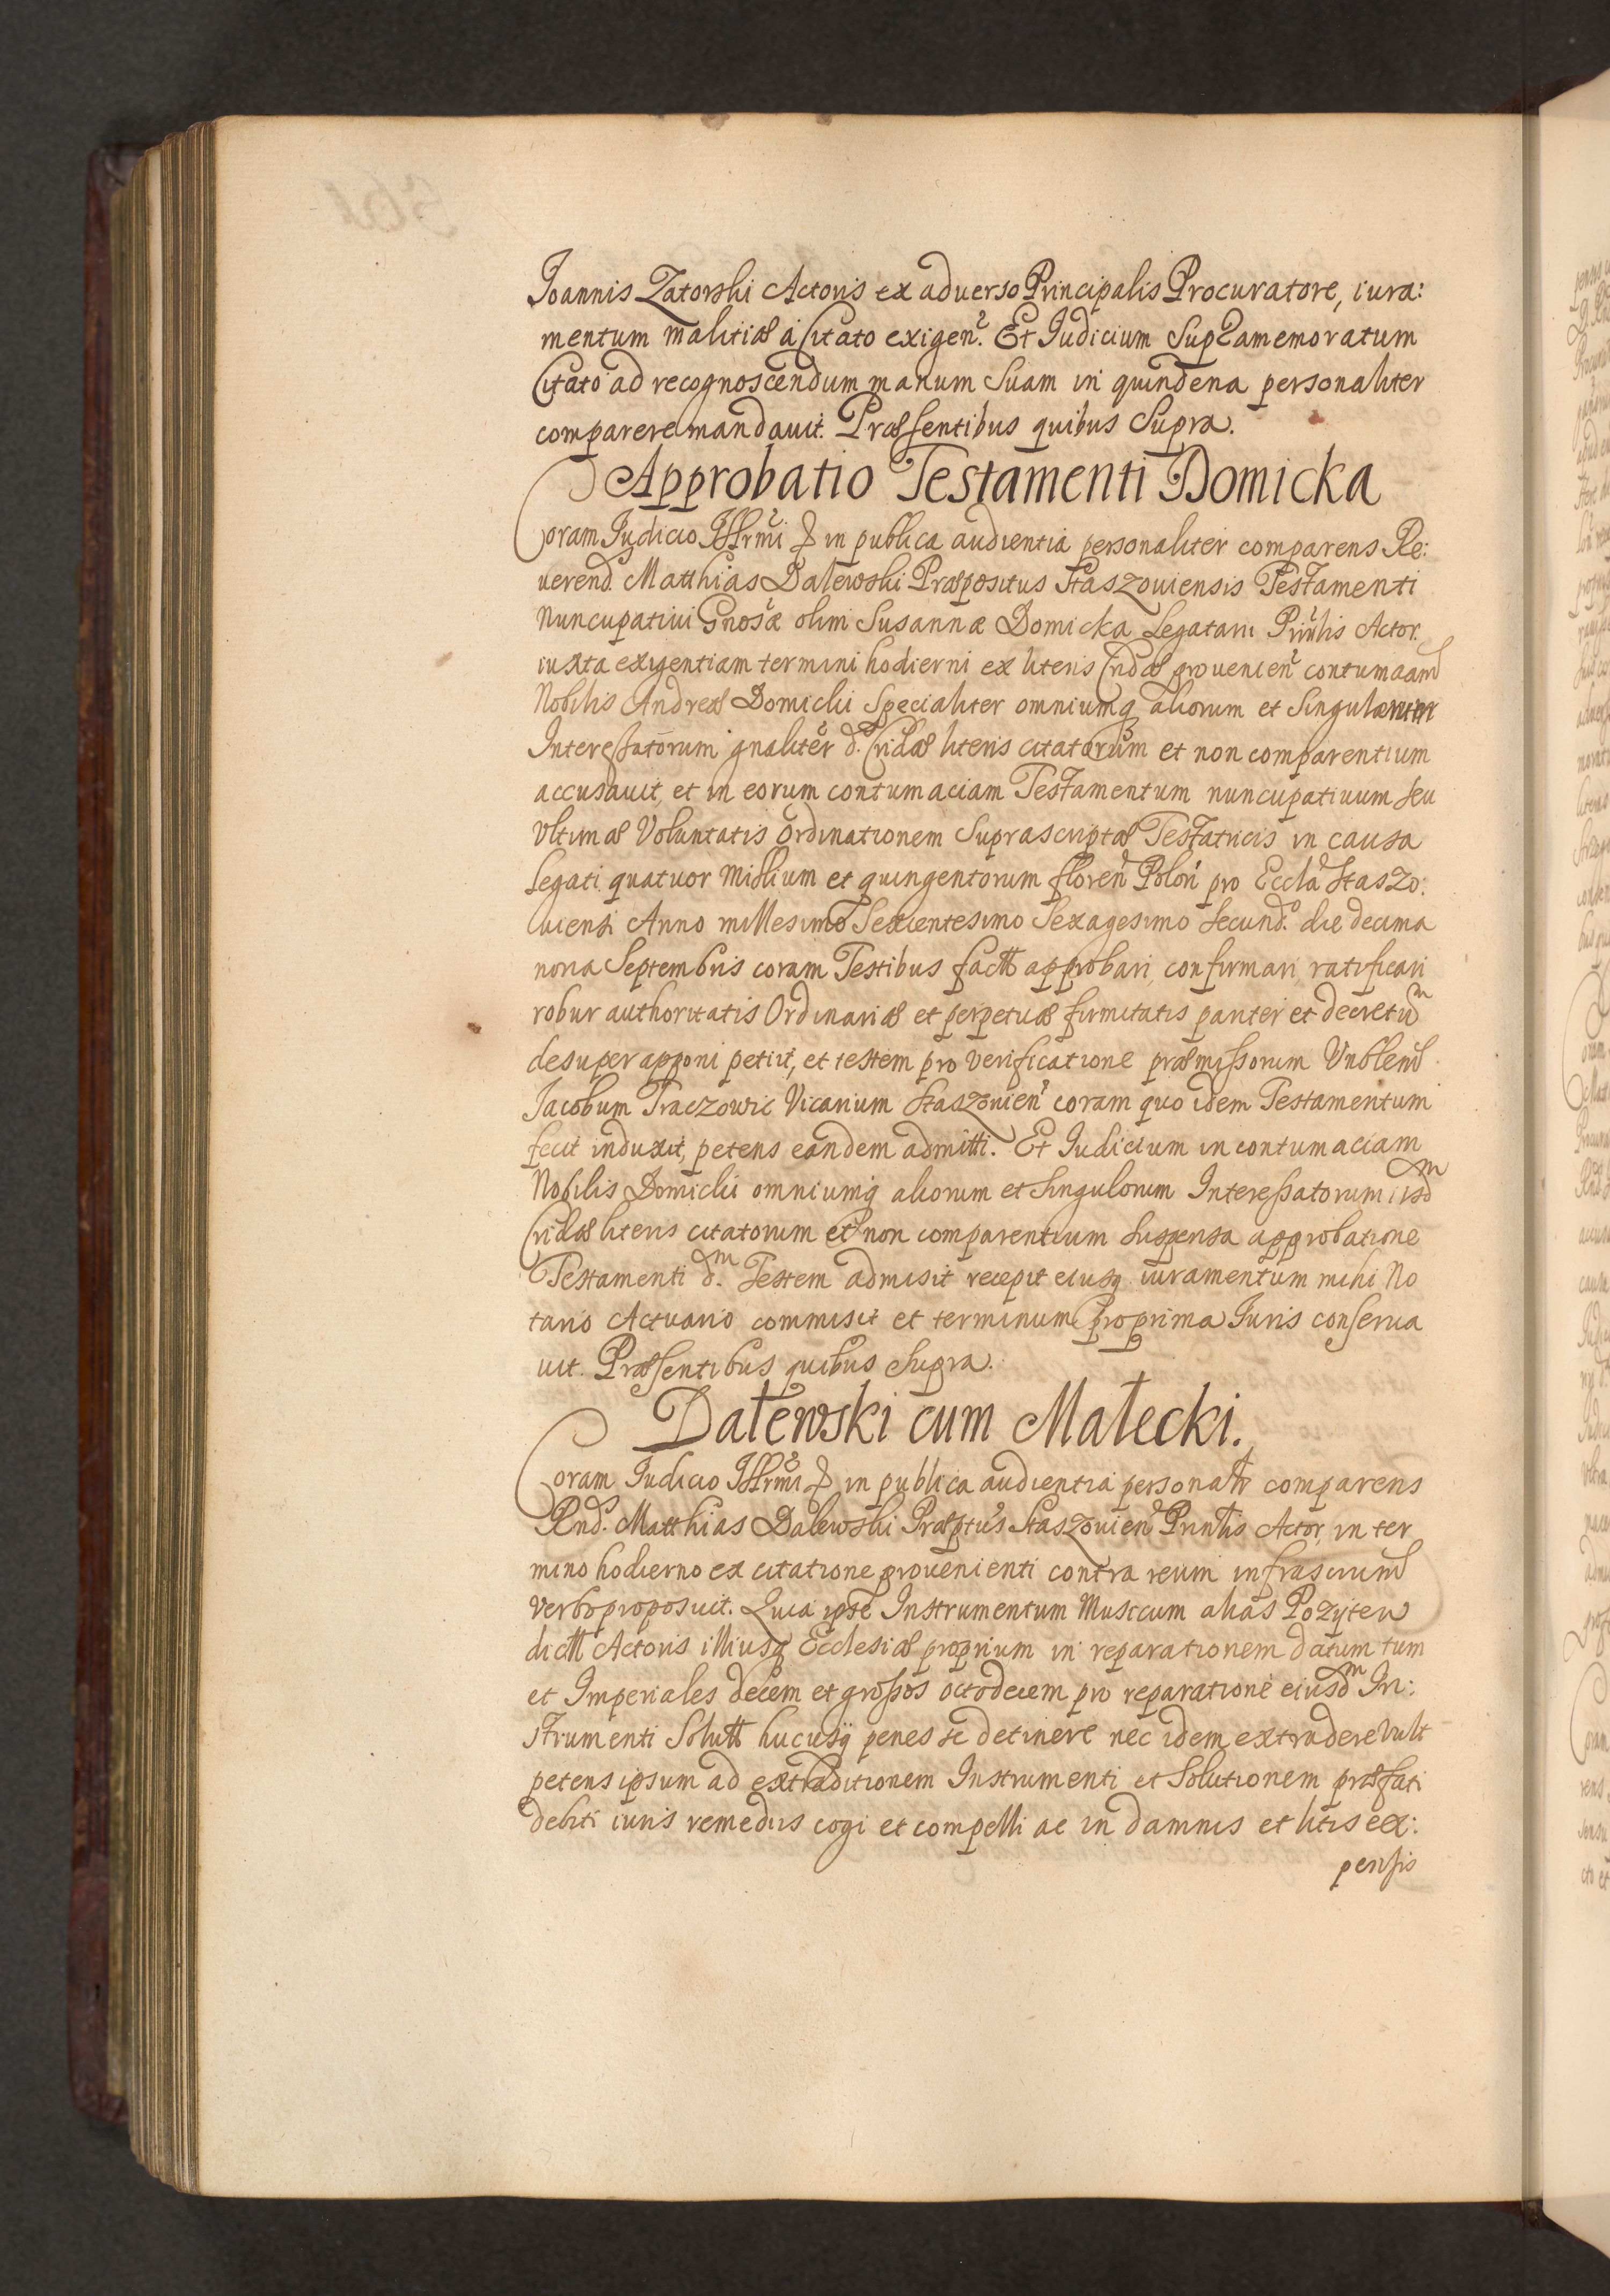 Joannis Zatorski Actoris ex aduerso Principalis Procuratore, iura:
mentum malitiæ a Citato exigen. Et Judicium Supramemoratum
Citato ad recognoscendum manum Suam in quindena personaliter
comparere mandauit. Præsentibus quibus Supra.
Approbatio Testamenti Domicka
Coram Judicio Illrmi in publica audientia personaliter comparens Re:
uerend. Matthias Dalewski Præpositus Staszouiensis Testamenti
Nuncupatiui Gnosæ olim Susannæ Domicka Legatarii Prinlis Actor.
iuxta exigentiam termini hodierni ex literis Cridæ prouenien contumaciam
Nobilis Andreæ Domicki Specialiter omniumq aliorum et Singulorum
Interessatorum gnaliter d. Cridæ literis citatorum et non comparentium
accusauit, et in eorum contumaciam Testamentum nuncupatiuum seu
Vltimæ Voluntatis Ordinationem Suprascriptæ Testatricis in causa
Legati quatuor Millium et quingentorum floren Polon pro Eccla Staszo:
uiensi Anno millesimo Sexcentesimo Sexagesimo Secund. die decima
nona Septembris coram Testibus factt approbari, confirmari, ratificari
robur authoritatis Ordinariæ et perpetuæ firmitatis pariter et decretum
desuper apponi petiit, et testem pro verificatione præmissorum Vnblem
Jacobum Traczowic Vicarium Staszouien coram quo idem Testamentum
fecit induxit, petens eandem admitti. Et Iudicium in contumaciam
Nobilis Domicki omniumq aliorum et Singulorum Interessatorum iisdm
Cridæ literis citatorum et non comparentium suspensa approbatione
Testamenti dm. Testem admisit recepit eiusq iuramentum mihi No
tario Actuario commisit et terminum pro prima Iuris conserua
uit. Præsentibus quibus Supra.
Datewski cum Małecki.
Coram Judicio Illrmi in publica audientia personalr comparens
Rnd. Matthias Dalewski Præptus Staszouien Prinlis Actor, in ter
mino hodierno ex citatione prouenienti contra reum infrascrium
verbo proposuit. Quia ipse Instrumentum Musicum alias Pozytew
dictt Actoris illiusq Ecclesiæ proprium in reparationem datum tum
et Imperiales decem et grossos octodecem pro reparatione eiusdm In:
strumenti Solutt hucusq penes se detinere nec idem extradere vult
petens ipsum ad extraditionem Instrumenti et Solutionem præfati
debiti iuris remediis cogi et compelli ac in damnis et litis ex:
pensis